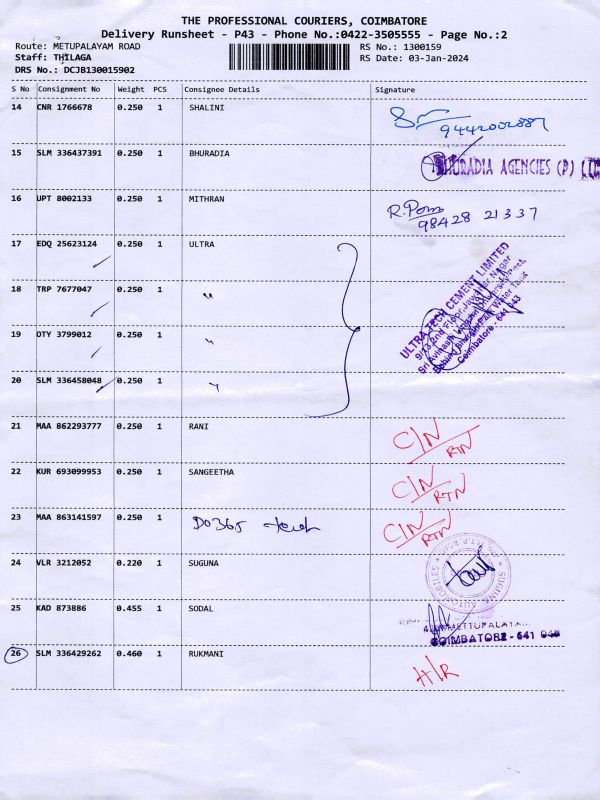 THE PROFESSIONAL COURIERS, COIMBATORE
Delivery Runsheet - P43 - Phone No.:0422-3505555 - Page No.:2
Route: METUPALAYAM ROAD RS No.: 1300159
Staff: THILAGA RS Date: 03-Jan-2024
DRS No.: DCJB130015902
S No Consignment No Weight PCS Consignee Details Signature
14 CNR 1766678 0.250 1 SHALINI
9442002887
15 SLM 336437391 0.250 1 BHURADIA
BHURADIA AGENCIES (P) LTD
16 UPT 8002133 0.250 1 MITHRAN
98428 21337
17 EDQ 25623124 0.250 1 ULTRA
18 TRP 7677047 0.250 1 "
19 OTY 3799012 0.250 1 "
20 SLM 336458048 0.250 1 "
ULTRA TECH CEMENT LIMITED
Coimbatore - 641 043
21 MAA 862293777 0.250 1 RANI C/N RTN
22 KUR 693099953 0.250 1 SANGEETHA C/N RTN
23 MAA 863141597 0.250 1 DO365 C/N RTN
24 VLR 3212052 0.220 1 SUGUNA
SUGUNA AUTOMOBILES
25 KAD 873886 0.455 1 SODAL
METTUPALAYAM
COIMBATORE - 641 043
26 SLM 336429262 0.460 1 RUKMANI H/R